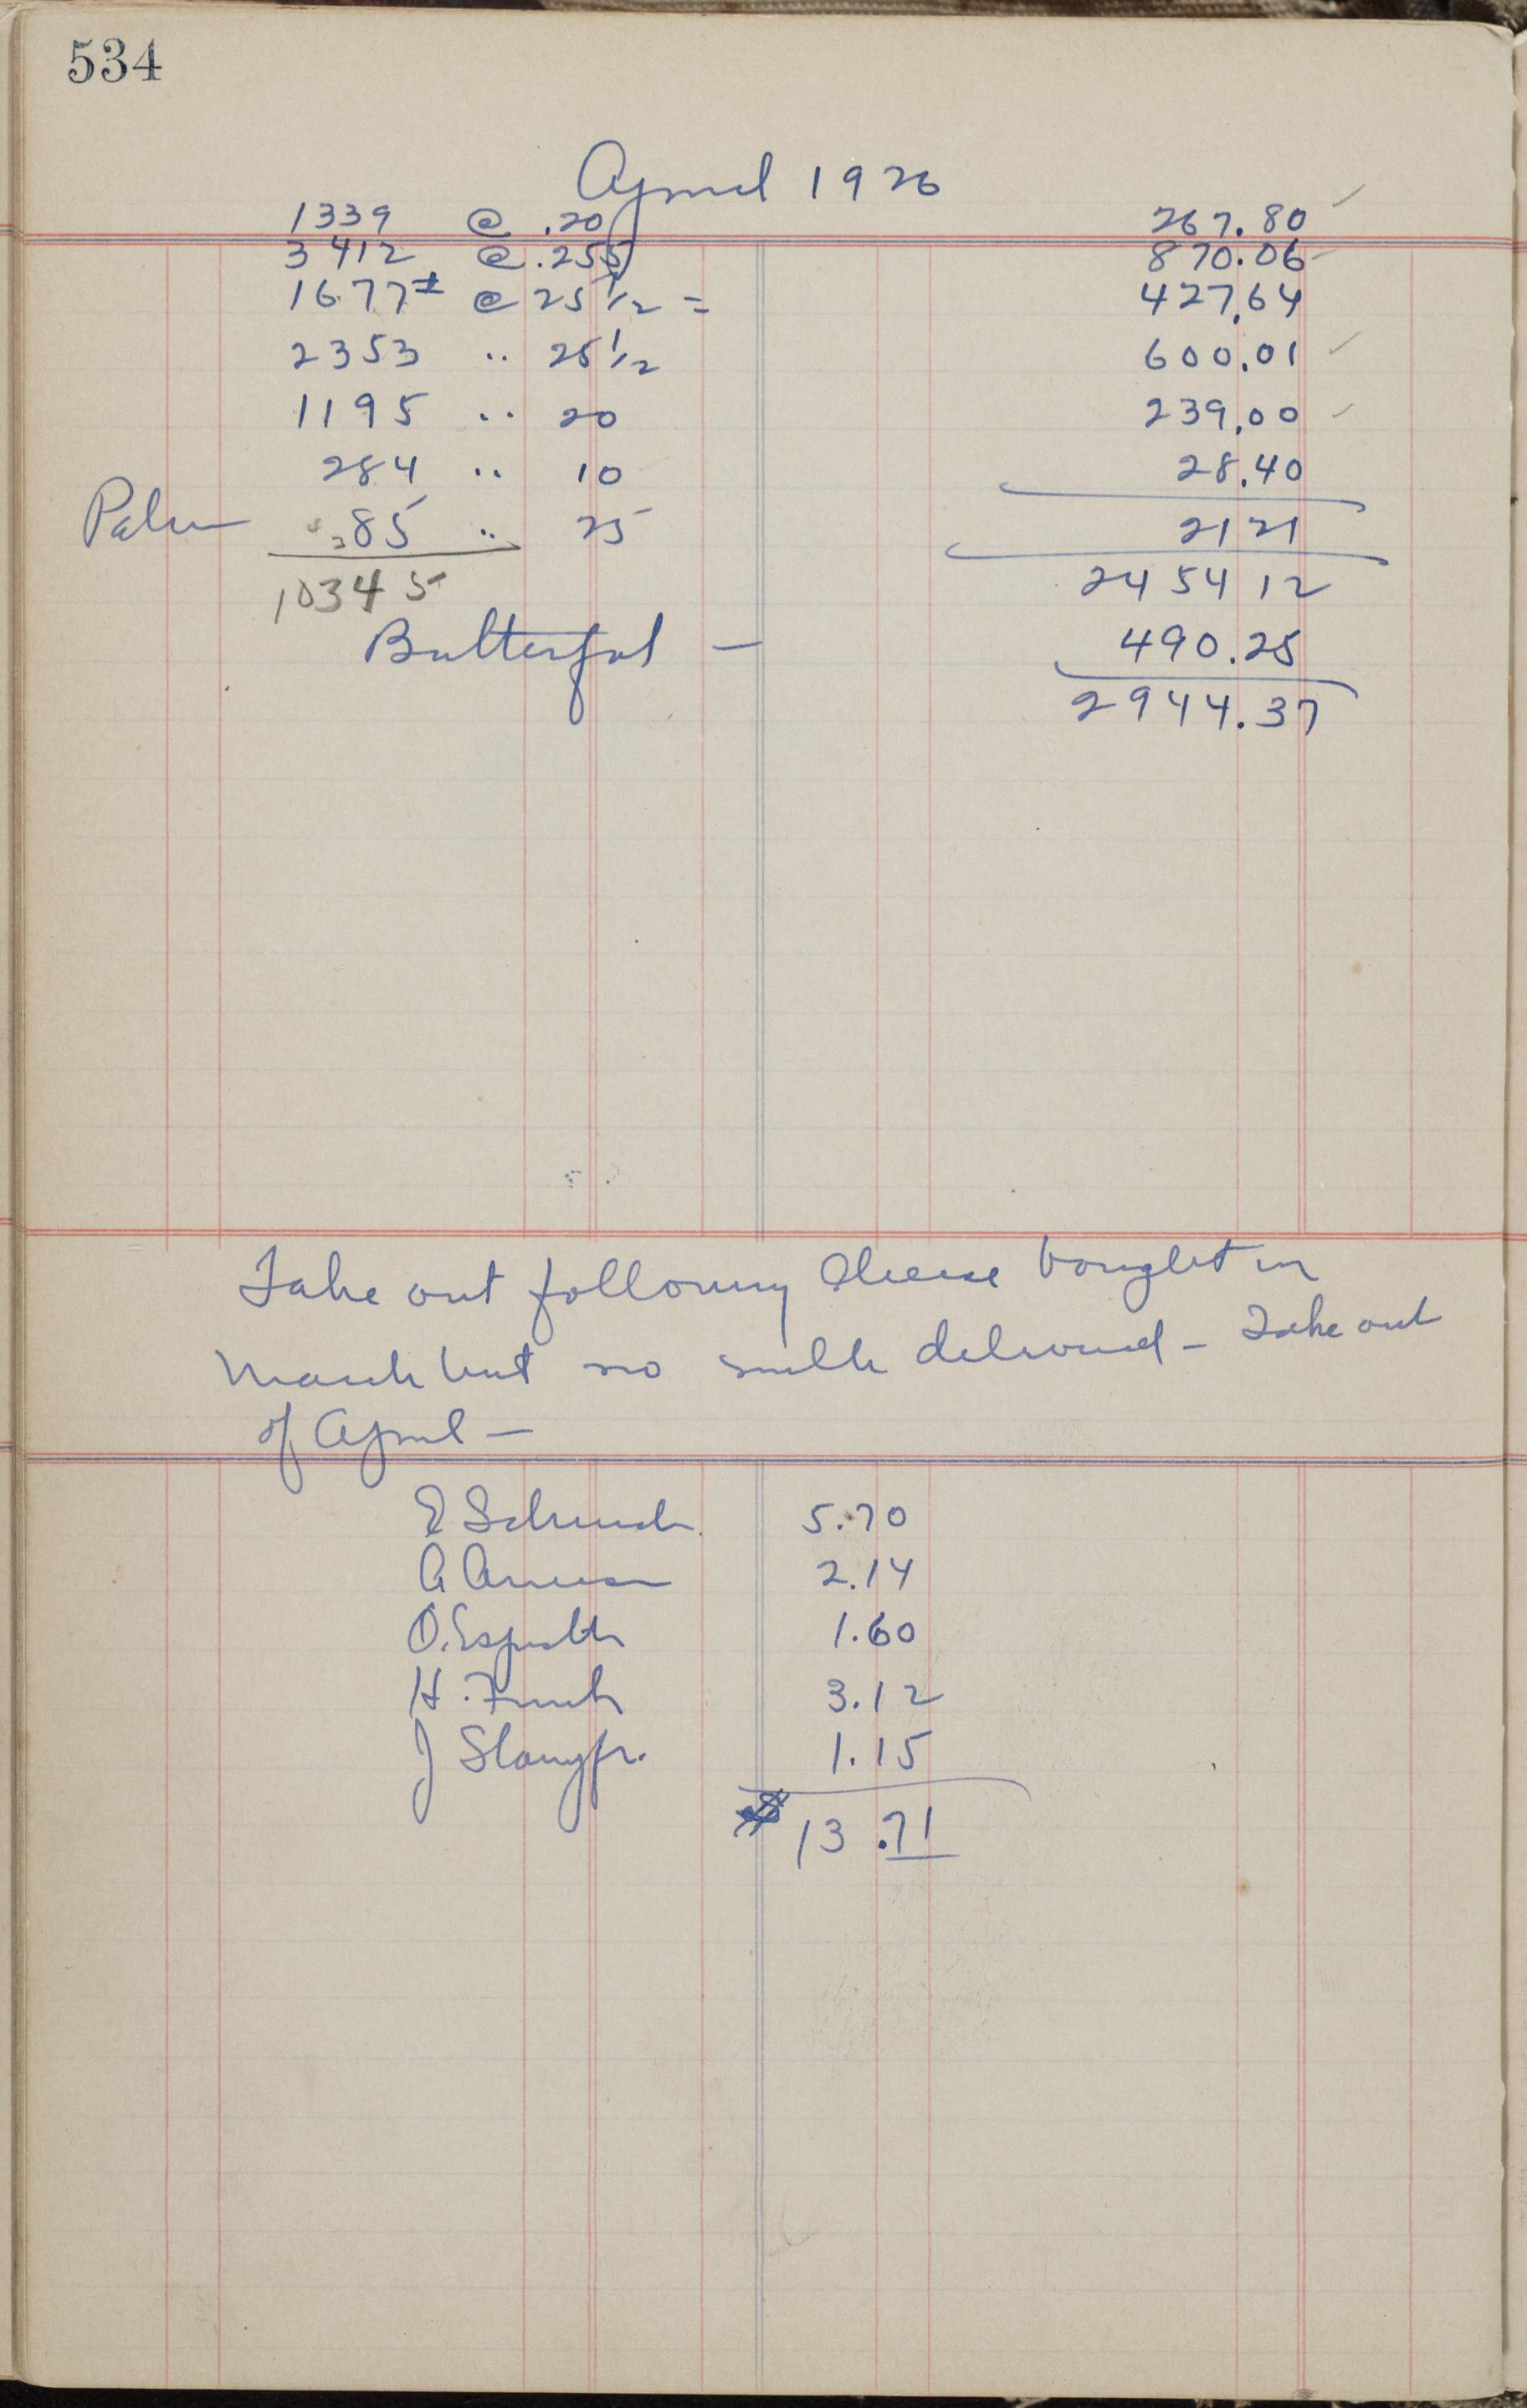 534
April 1926
1339 @ .20 267.80
3412 @ .255 870.06
1677# @ 25 1/2 = 427.64
2353 " 25 1/2 600.01
1195 " 20 239.00
284 " 10 28.40
85 " 25 2121
10345 2454 12
Butterfat — 490.25
2944.37
Take out following Cheese bought in
March but no milk delivered - Take out
of April —
E Schmidt 5.70
A 2.14
O. 1.60
H. 3.12
J Slamyfr. 1.15
$13.71